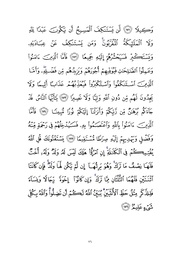 وَكِيلًا ۝ لَّن يَسْتَنكِفَ ٱلْمَسِيحُ أَن يَكُونَ عَبْدًا لِّلَّهِ
وَلَا ٱلْمَلَٰٓئِكَةُ ٱلْمُقَرَّبُونَ ۚ وَمَن يَسْتَنكِفْ عَنْ عِبَادَتِهِۦ
وَيَسْتَكْبِرْ فَسَيَحْشُرُهُمْ إِلَيْهِ جَمِيعًا ۝ فَأَمَّا ٱلَّذِينَ ءَامَنُوا۟
وَعَمِلُوا۟ ٱلصَّٰلِحَٰتِ فَيُوَفِّيهِمْ أُجُورَهُمْ وَيَزِيدُهُم مِّن فَضْلِهِۦ ۖ وَأَمَّا
ٱلَّذِينَ ٱسْتَنكَفُوا۟ وَٱسْتَكْبَرُوا۟ فَيُعَذِّبُهُمْ عَذَابًا أَلِيمًا وَلَا
يَجِدُونَ لَهُم مِّن دُونِ ٱللَّهِ وَلِيًّا وَلَا نَصِيرًا ۝ يَٰٓأَيُّهَا ٱلنَّاسُ قَدْ
جَآءَكُم بُرْهَٰنٌ مِّن رَّبِّكُمْ وَأَنزَلْنَآ إِلَيْكُمْ نُورًا مُّبِينًا ۝ فَأَمَّا
ٱلَّذِينَ ءَامَنُوا۟ بِٱللَّهِ وَٱعْتَصَمُوا۟ بِهِۦ فَسَيُدْخِلُهُمْ فِى رَحْمَةٍ مِّنْهُ
وَفَضْلٍ وَيَهْدِيهِمْ إِلَيْهِ صِرَٰطًا مُّسْتَقِيمًا ۝ يَسْتَفْتُونَكَ قُلِ ٱللَّهُ
يُفْتِيكُمْ فِى ٱلْكَلَٰلَةِ ۚ إِنِ ٱمْرُؤٌا۟ هَلَكَ لَيْسَ لَهُۥ وَلَدٌ وَلَهُۥٓ أُخْتٌ
فَلَهَا نِصْفُ مَا تَرَكَ ۚ وَهُوَ يَرِثُهَآ إِن لَّمْ يَكُن لَّهَا وَلَدٌ ۚ فَإِن كَانَتَا
ٱثْنَتَيْنِ فَلَهُمَا ٱلثُّلُثَانِ مِمَّا تَرَكَ ۚ وَإِن كَانُوٓا۟ إِخْوَةً رِّجَالًا وَنِسَآءً
فَلِلذَّكَرِ مِثْلُ حَظِّ ٱلْأُنثَيَيْنِ ۗ يُبَيِّنُ ٱللَّهُ لَكُمْ أَن تَضِلُّوا۟ ۗ وَٱللَّهُ بِكُلِّ
شَىْءٍ عَلِيمٌۢ ۝